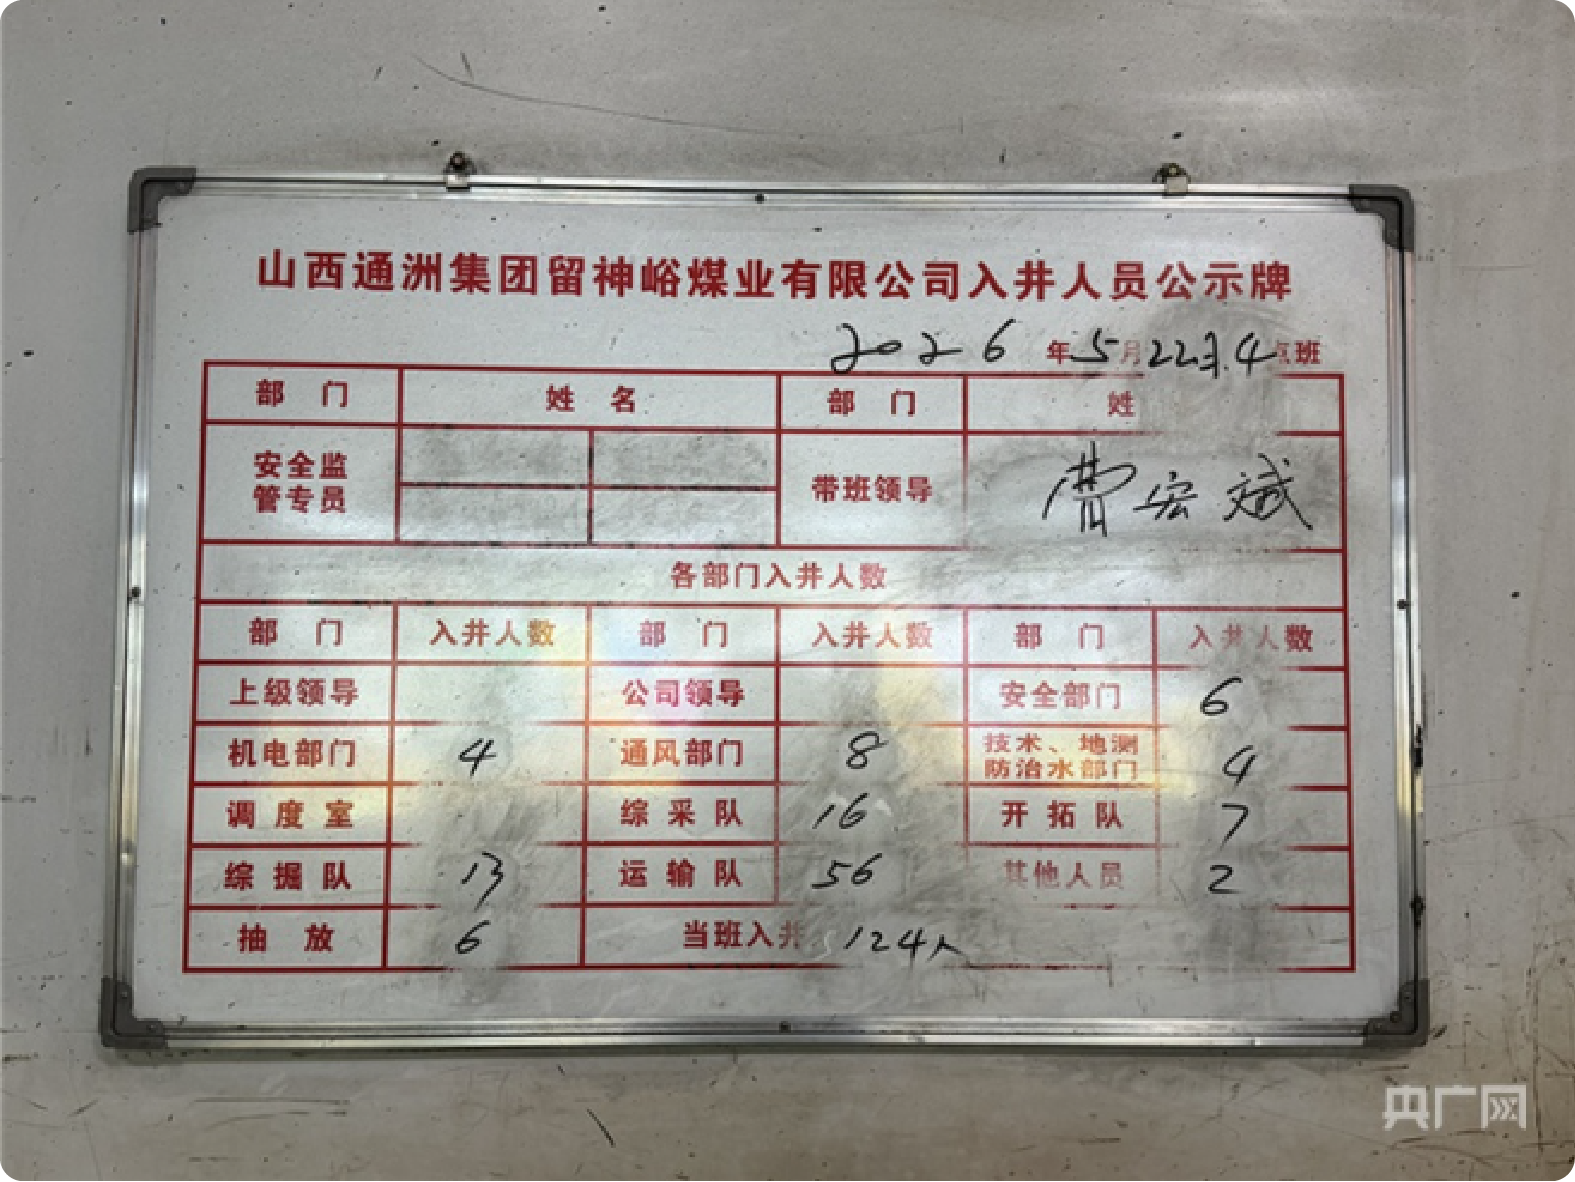 山西通洲集团留神峪煤业有限公司入井人员公示牌
2026年5月22日4点班
部 门 姓 名 部 门 姓
安全监管专员 带班领导 曹宏斌
各部门入井人数
部 门 入井人数 部 门 入井人数 部 门 入井人数
上级领导 公司领导 安全部门 6
机电部门 4 通风部门 8 技术、地测防治水部门 4
调度室 综采队 16 开拓队 7
综掘队 13 运输队 56 其他人员 2
抽 放 6 当班入井 124人
央广网